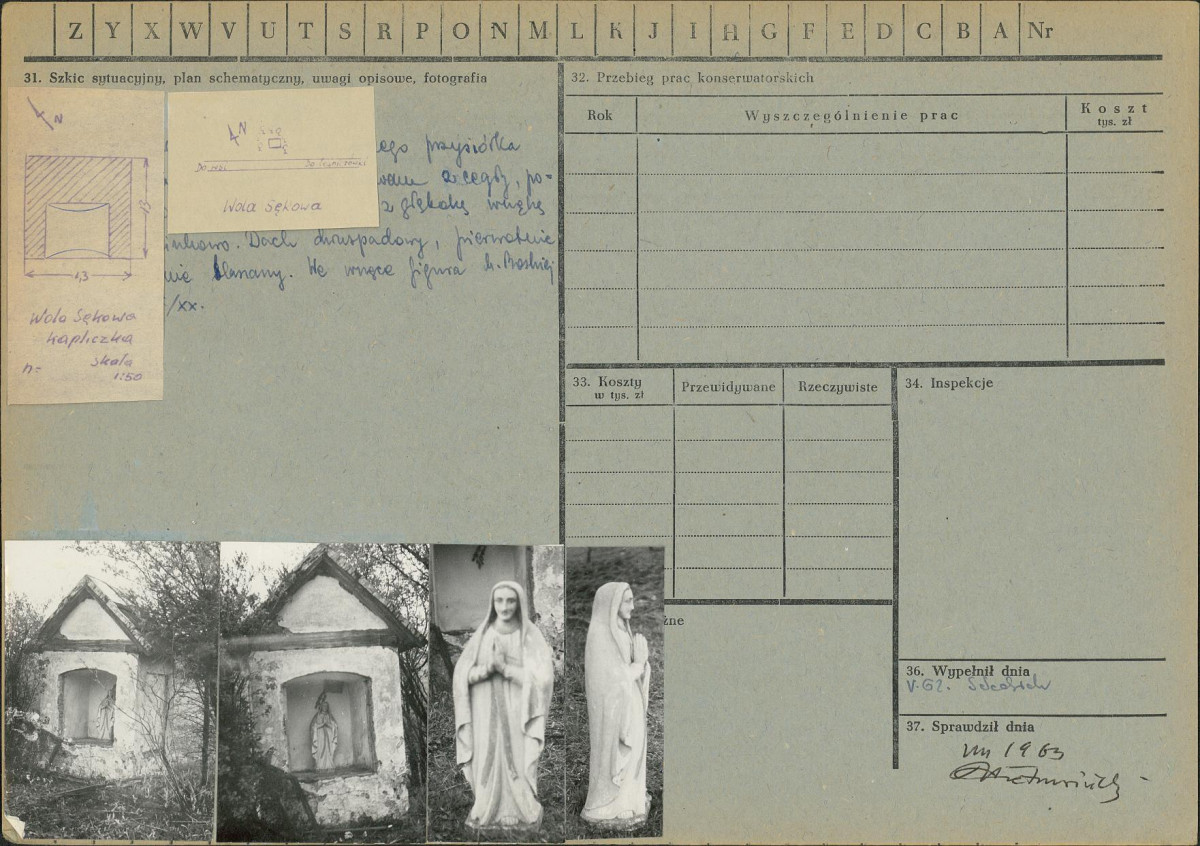 Z Y X W V U T S R P O N M L K J I H G F E D C B A Nr
31. Szkic sytuacyjny, plan schematyczny, uwagi opisowe, fotografia
N
1,3
Wola Sękowa
kapliczka
h= skala
1:50
N
Do wsi
Wola Sękowa
ego przysiółka
z cegły, po-
z głęboką wnęką
Dach dwuspadowy, pierwotnie
blaszany. We wnęce figura M. Boskiej
/XX.
32. Przebieg prac konserwatorskich
Rok Wyszczególnienie prac Koszt
tys. zł
33. Koszty Przewidywane Rzeczywiste
w tys. zł
34. Inspekcje
żne
36. Wypełnił dnia
V.62.
37. Sprawdził dnia
1963